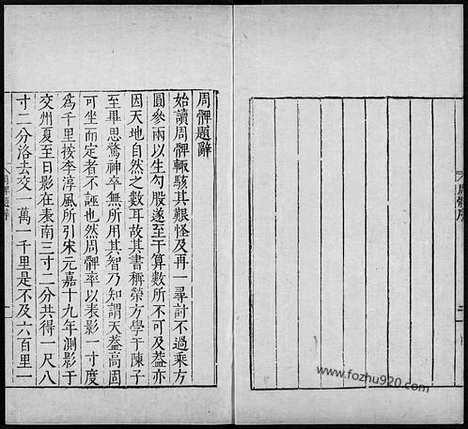 周髀題辭
始讀周髀輙駭其艱怪及再一尋討不過乗方
圓參兩以生勾股遂至于算數所不可及葢亦
因天地自然之數耳故其書稱榮方學于陳子
至畢思驚神卒無所用其智乃知謂天葢高固
可坐而定者不誣也然周髀率以表影一寸度
爲千里按李淳風所引宋元嘉十九年測影于
交州夏至日影在表南三寸二分共得一尺八
寸二分洛去交一萬一千里是不及六百里一
www.fozhu920.com